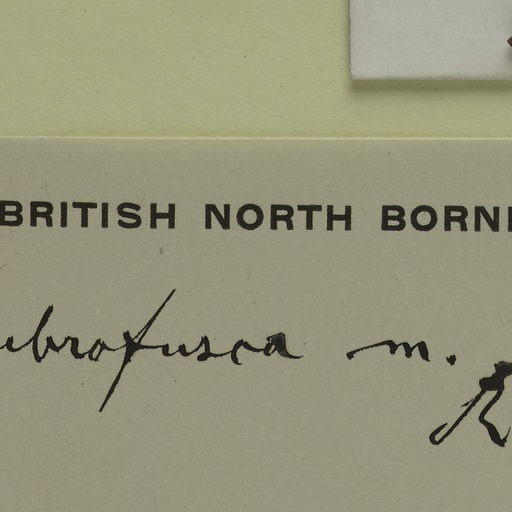 BRITISH NORTH BORN
ubrofusca m.
R